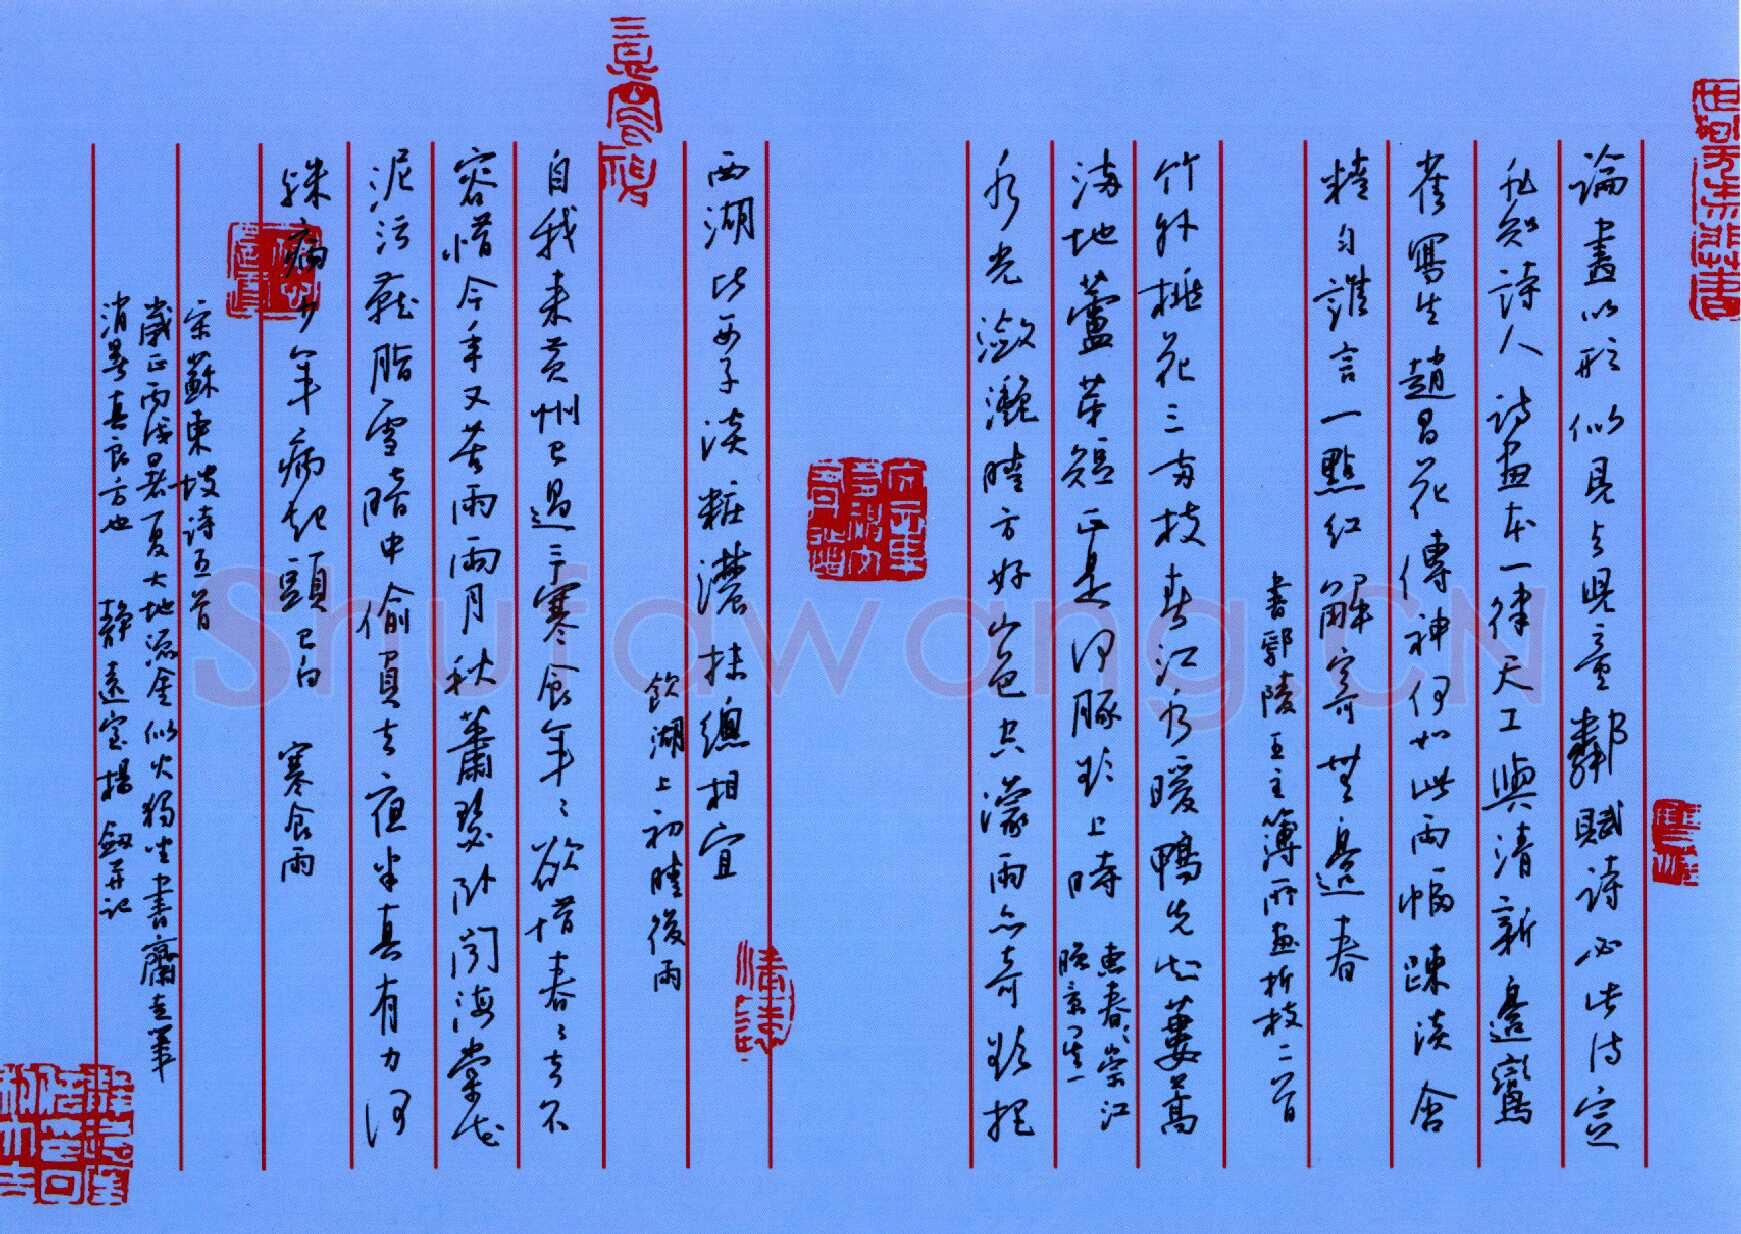 論畫以形似見与兒童鄰賦詩必此詩定
非知詩人詩畫本一律天工與清新邊鸞
雀寫生趙昌花傳神何如此兩幅踈淡含
精勻誰言一點紅解寄無邊春
書鄢陵王主簿所畫折枝二首
竹外桃花三两枝春江水暖鴨先知蔞蒿
满地蘆芽短正是河豚欲上時
惠春崇江
晚景
水光瀲灧晴方好山色空濛雨亦奇欲把
西湖比西子淡粧濃抹總相宜
飲湖上初晴後雨
自我来黄州已過三寒食年〻欲惜春〻去不
容惜今年又苦雨兩月秋蕭瑟卧聞海棠花
泥污燕脂雪暗中偷負去夜半真有力何
殊病少年病起頭已白 寒食雨
宋蘇東坡詩五首
歲在丙戌暑夏大地流金似火獨坐書齋走筆
消暑真良方也 静遠室楊劔并記
Shufawang.CN